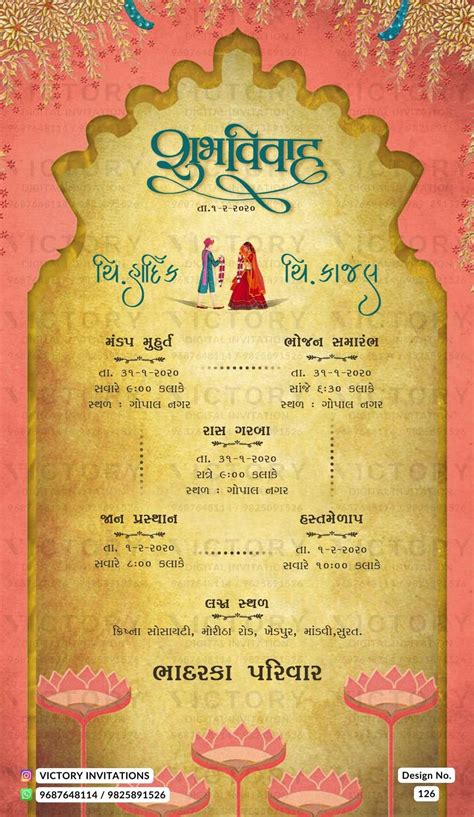 શુભવિવાહ
તા.૧-૨-૨૦૨૦
ચિ.હાર્દિક
ચિ.કાજલ
મંડપ મુહુર્ત
તા. ૩૧-૧-૨૦૨૦
સવારે ૯:૦૦ કલાકે
સ્થળ : ગોપાલ નગર
ભોજન સમારંભ
તા. ૩૧-૧-૨૦૨૦
સાંજે ૬:૩૦ કલાકે
સ્થળ : ગોપાલ નગર
રાસ ગરબા
તા. ૩૧-૧-૨૦૨૦
રાત્રે ૯:૦૦ કલાકે
સ્થળ : ગોપાલ નગર
જાન પ્રસ્થાન
તા. ૧-૨-૨૦૨૦
સવારે ૮:૦૦ કલાકે
હસ્તમેળાપ
તા. ૧-૨-૨૦૨૦
સવારે ૧૦:૦૦ કલાકે
લગ્ન સ્થળ
ક્રિષ્ના સોસાયટી, મોરીઠા રોડ, ખેડપુર, માંડવી,સુરત.
ભાદરકા પરિવાર
VICTORY INVITATIONS
9687648114 / 9825891526
Design No.
126